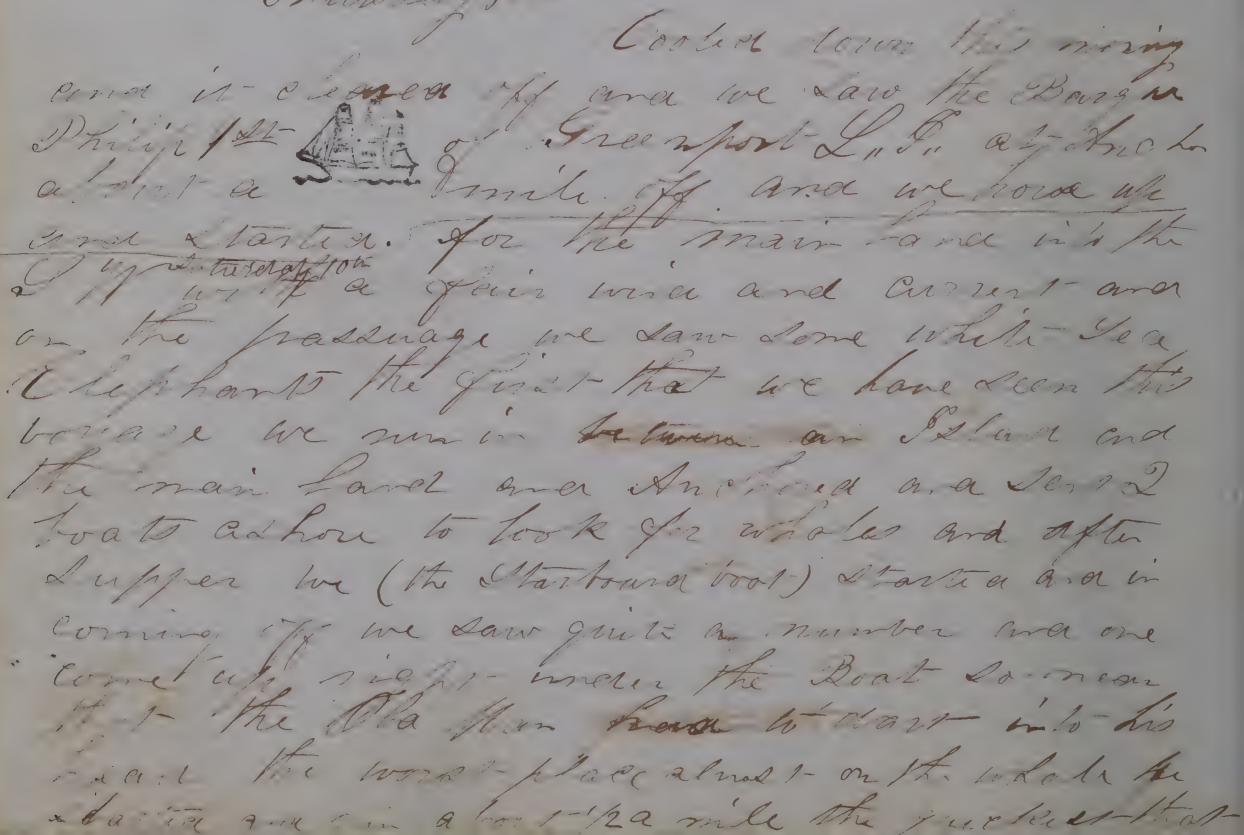 Cooled down this moring
and it cleared off and we saw the Barque
Philip 1st of Greenport L,,I,, at Anchor
about a mile off and we hove up
and started. for the main land into the
tuesday 10th
with a fair wind and current and
on the passuage we saw some white Sea
Elephants the first that we have seen this
voyage we run in between an Island and
the main land and Anchored and sent 2
boats ashore to look for whales and after
Supper we (the Starboard boat) started and in
coming off we saw quite a number and one
come up right under the Boat so near
that the Old Man had to dart into his
head the worst place almost on the whale he
started and run about 1/2 a mile the quickest that